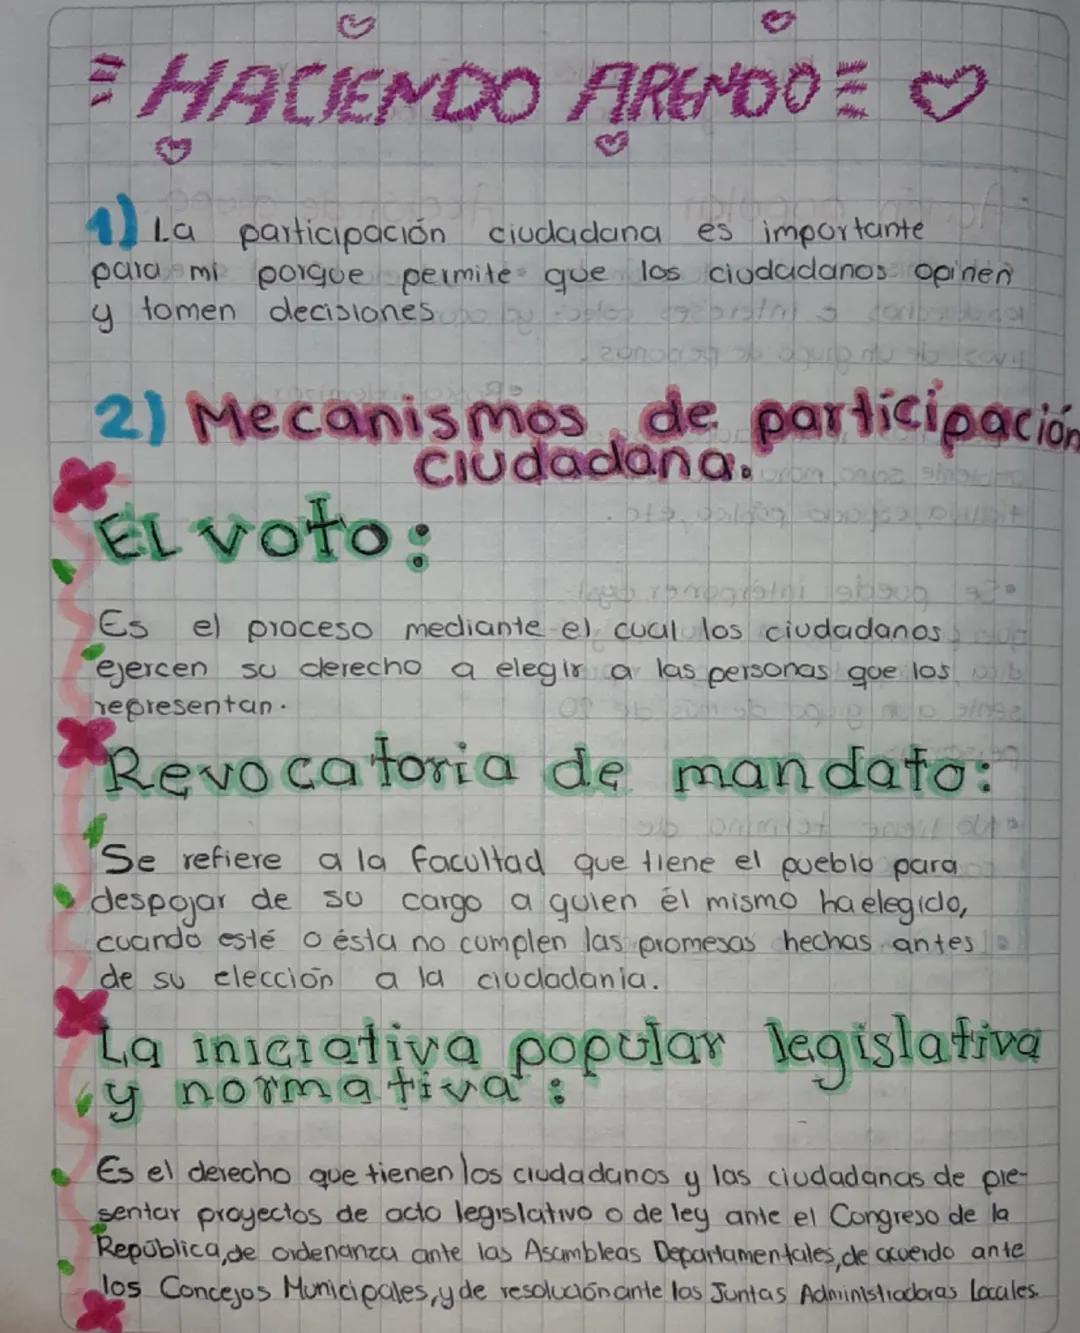 HACIENDO ARENDO
1) La participación ciudadana es importante
para mi porque permite que los ciudadanos opinen
y tomen decisiones
2) Mecanismos de participación
ciudadana.
El voto:
Es el proceso mediante el cual los ciudadanos
ejercen su derecho a elegir a las personas que los
representan.
Revocatoria de mandato:
Se refiere a la facultad que tiene el pueblo para
despojar de su cargo a quien él mismo ha elegido,
cuando esté o ésta no cumplen las promesas hechas antes
de su elección a la ciudadania.
La iniciativa popular legislativa
y normativa:
Es el derecho que tienen los ciudadanos y las ciudadanas de pre-
sentar proyectos de acto legislativo o de ley ante el Congreso de la
República, de ordenanza ante las Asambleas Departamentales, de acuerdo ante
los Concejos Municipales, y de resolución ante las Juntas Administradoras Locales.